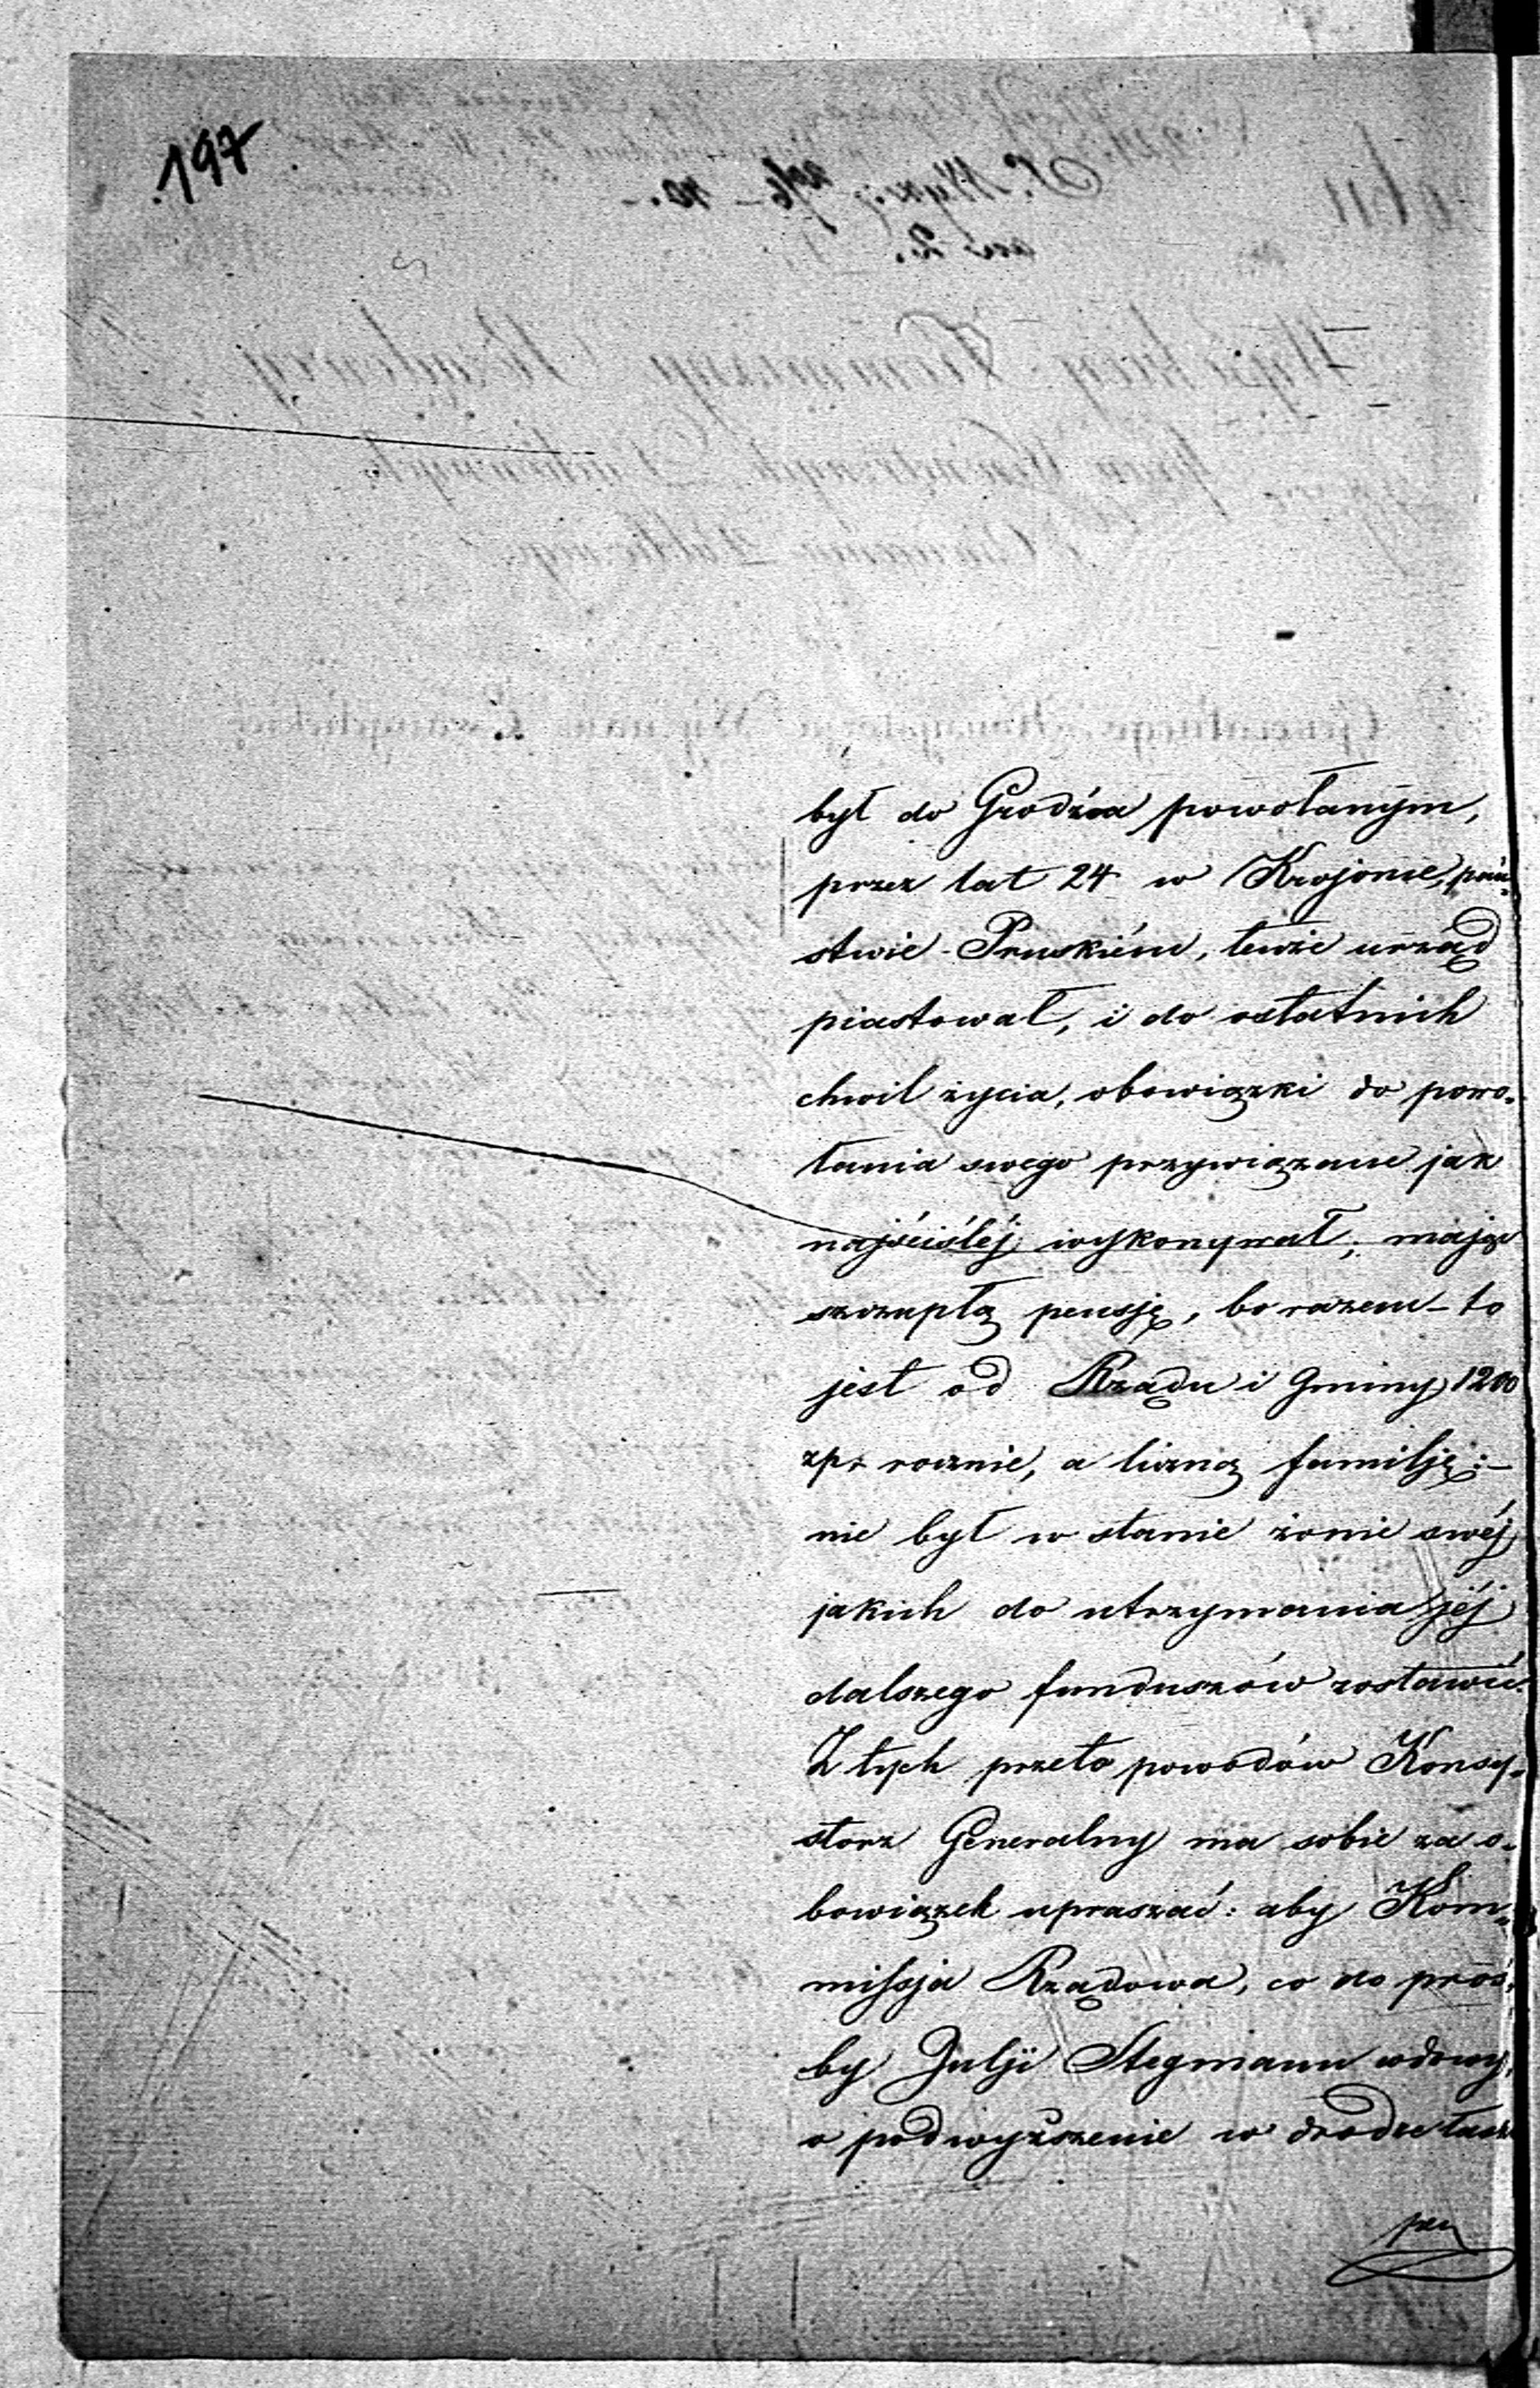 197
był do Grodźca powołanym,
przez lat 24 w Krojonie, pań-
stwie Pruskiém, tenże urząd
piastował, i do ostatnich
chwil życia, obowiązki do powo-
łania swego przywiązane jak
najściśléj wykonywał; mając
szczupłą pensję, bo razem to
jest od Rządu i Gminy 1200
złp. rocznie, a liczną familję:
nie był w stanie żonie swéj
jakich do utrzymania jéj
dalszego funduszów zostawić.
Z tych przeto powodów Konsy-
storz Generalny ma sobie za o-
bowiązek upraszać: aby Kom-
missja Rządowa, co do proś-
by Julji Stegmann wdowy,
o podwyższenie w drodze łaski